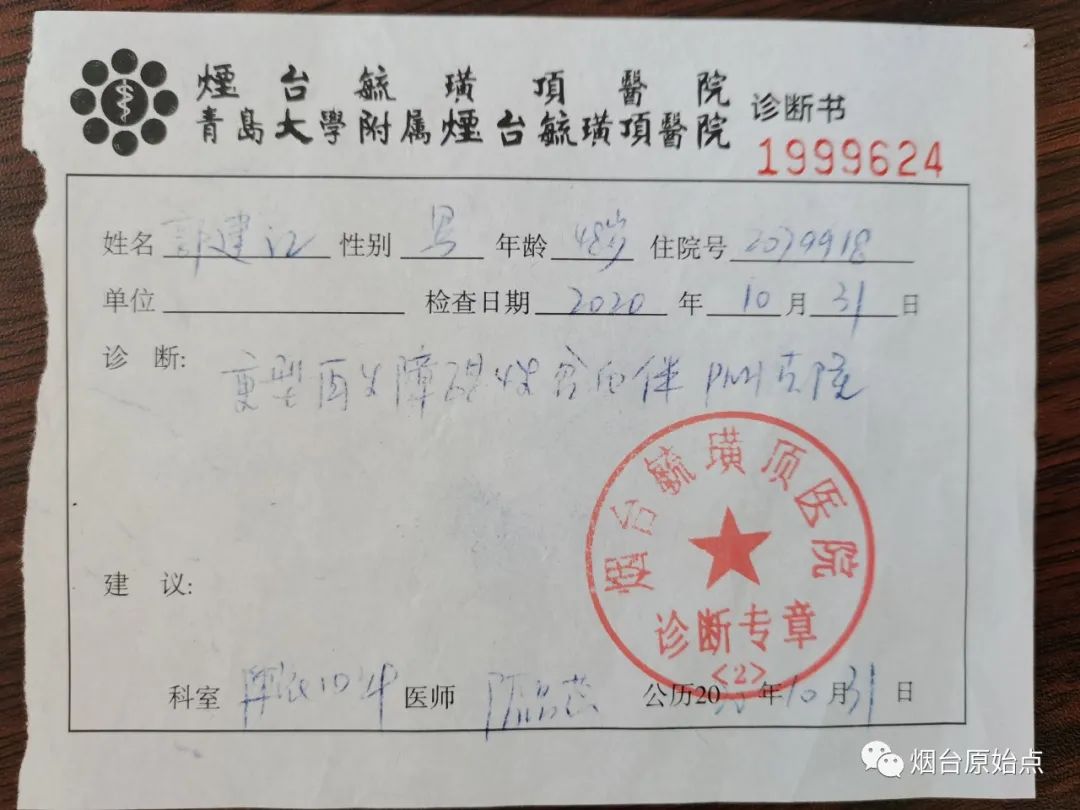 煙台毓璜頂醫院
青島大學附属煙台毓璜頂醫院 诊断书
1999624
姓名 郭建江 性别 男 年龄 48岁 住院号 2079918
单位 检查日期 2020 年 10 月 31 日
诊 断: 重型再生障碍性贫血伴PNH克隆
烟台毓璜顶医院
诊断专章
<2>
建 议:
科室 医师 公历2020年10月31日
烟台原始点